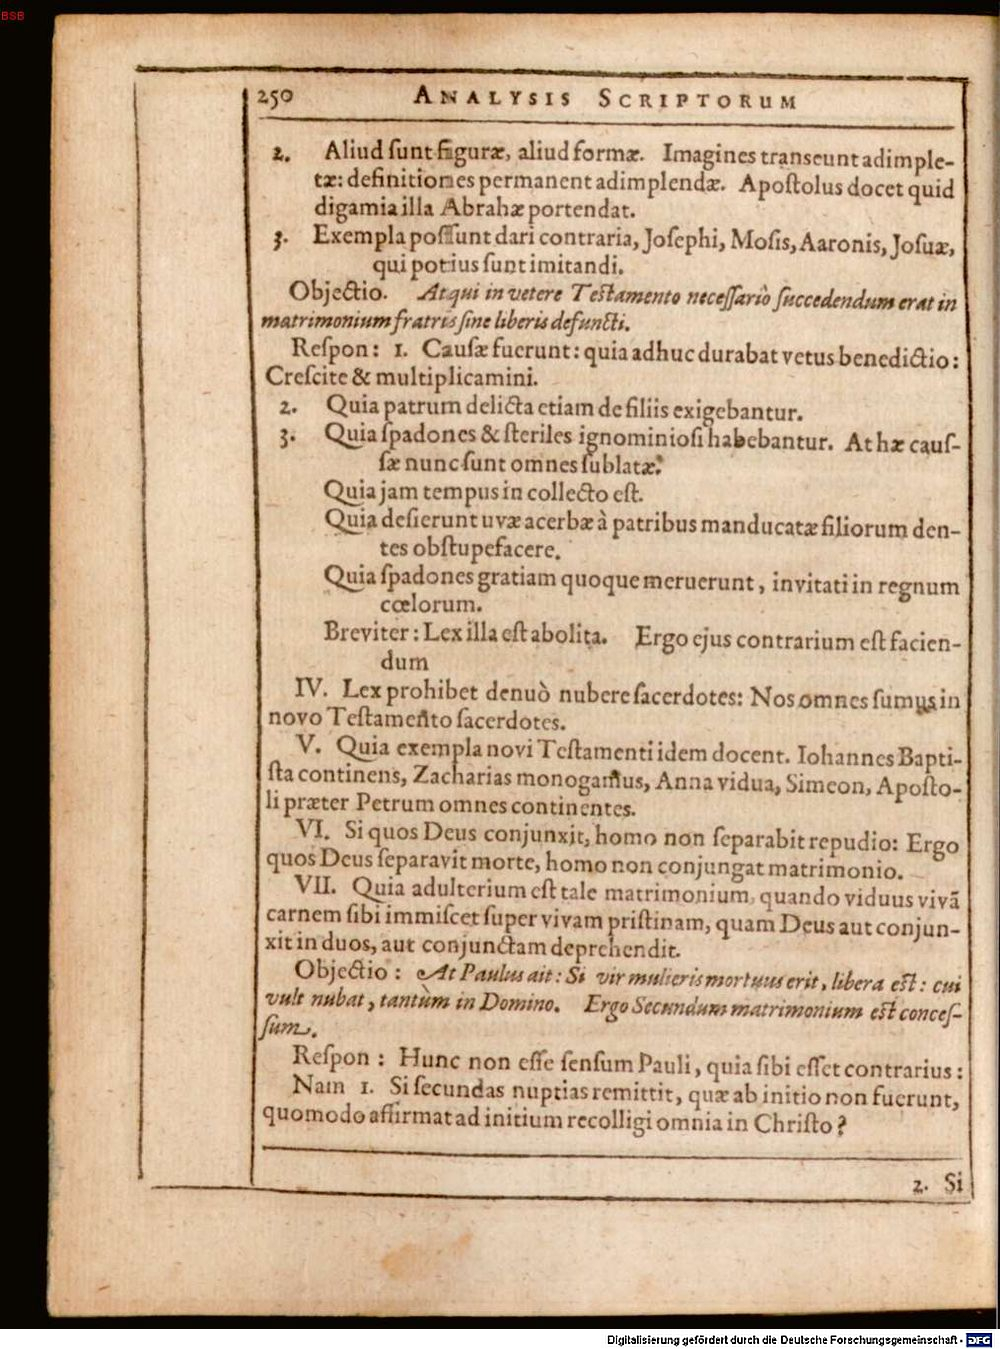 BSB
250 ANALYSIS SCRIPTORUM
2. Aliud ſunt figuræ, aliud formæ. Imagines transeunt adimple-
tæ: definitiones permanent adimplendæ. Apoſtolus docet quid
digamia illa Abrahæ portendat.
3. Exempla poſſunt dari contraria, Joſephi, Moſis, Aaronis, Joſuæ,
qui potius ſunt imitandi.
Objectio. Atqui in vetere Teſtamento neceſſariò ſuccedendum erat in
matrimonium fratris ſine liberis defuncti.
Reſpon: 1. Cauſæ fuerunt: quia adhuc durabat vetus benedictio:
Creſcite & multiplicamini.
2. Quia patrum delicta etiam de filiis exigebantur.
3. Quia ſpadones & ſteriles ignominioſi habebantur. At hæ cauſ-
ſæ nunc ſunt omnes ſublatæ:
Quia jam tempus in collecto eſt.
Quia deſierunt uvæ acerbæ à patribus manducatæ filiorum den-
tes obſtupefacere.
Quia ſpadones gratiam quoque meruerunt, invitati in regnum
cœlorum.
Breviter: Lex illa eſt abolita. Ergo ejus contrarium eſt facien-
dum
IV. Lex prohibet denuò nubere ſacerdotes: Nos omnes ſumus in
novo Teſtamento ſacerdotes.
V. Quia exempla novi Teſtamenti idem docent. Iohannes Bapti-
ſta continens, Zacharias monogamus, Anna vidua, Simeon, Apoſto-
li præter Petrum omnes continentes.
VI. Si quos Deus conjunxit, homo non ſeparabit repudio: Ergo
quos Deus ſeparavit morte, homo non conjungat matrimonio.
VII. Quia adulterium eſt tale matrimonium, quando viduus vivã
carnem ſibi immiſcet ſuper vivam priſtinam, quam Deus aut conjun-
xit in duos, aut conjunctam deprehendit.
Objectio: At Paulus ait: Si vir mulieris mortuus erit, libera eſt: cui
vult nubat, tantùm in Domino. Ergo Secundum matrimonium eſt conceſ-
ſum.
Reſpon: Hunc non eſſe ſenſum Pauli, quia ſibi eſſet contrarius:
Nam 1. Si ſecundas nuptias remittit, quæ ab initio non fuerunt,
quomodo affirmat ad initium recolligi omnia in Chriſto?
2. Si
Digitalisierung gefördert durch die Deutsche Forschungsgemeinschaft - DFG